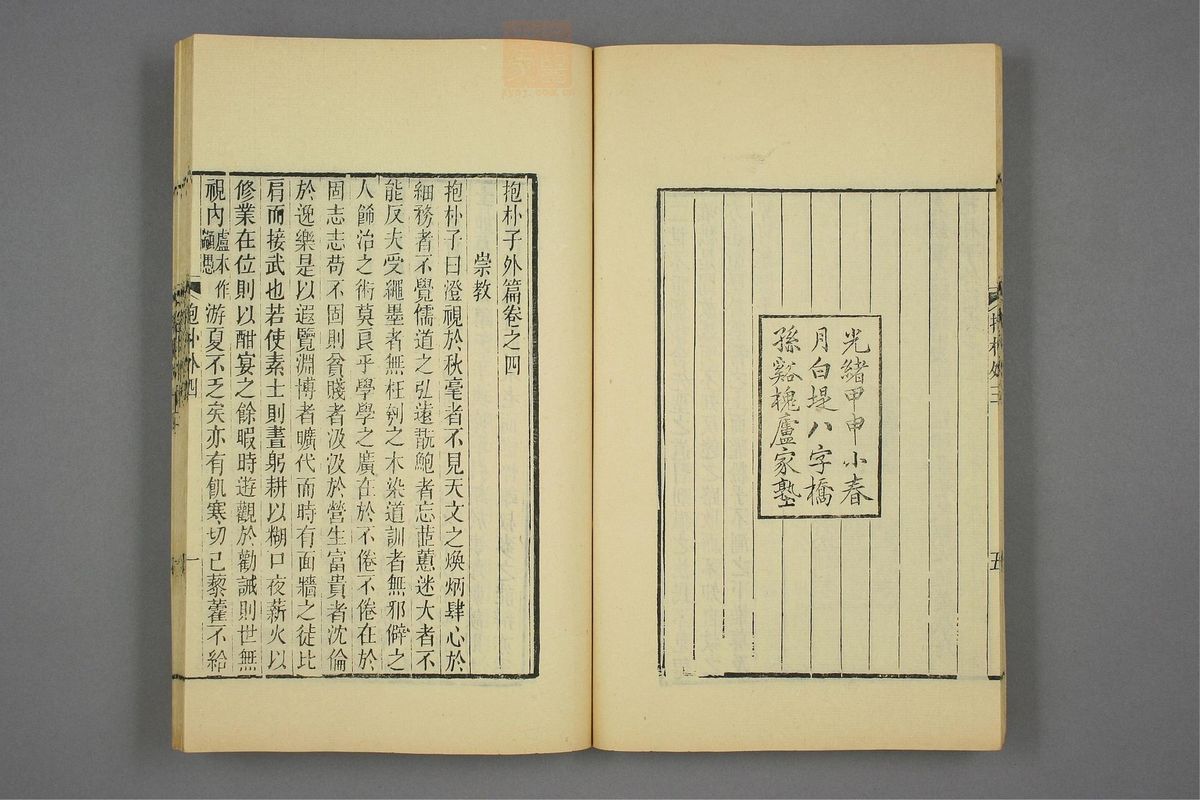 光緒甲申小春
月白堤八字橋
孫谿槐廬家塾
五
抱朴子外篇卷之四
崇教
抱朴子曰澄視於秋毫者不見天文之煥炳肆心於
細務者不覺儒道之弘遠翫鮑者忘茝蕙迷大者不
能反夫受繩墨者無枉刳之木染道訓者無邪僻之
人飾治之術莫良乎學學之廣在於不倦不倦在於
固志志苟不固則貧賤者汲汲於營生富貴者沈倫
於逸樂是以遐覽淵博者曠代而時有面牆之徒比
肩而接武也若使素士則晝躬耕以糊口夜薪火以
修業在位則以酣宴之餘暇時遊觀於勸誡則世無
視內盧本作游夏不乏矣亦有飢寒切己藜藿不給
抱朴外四
一